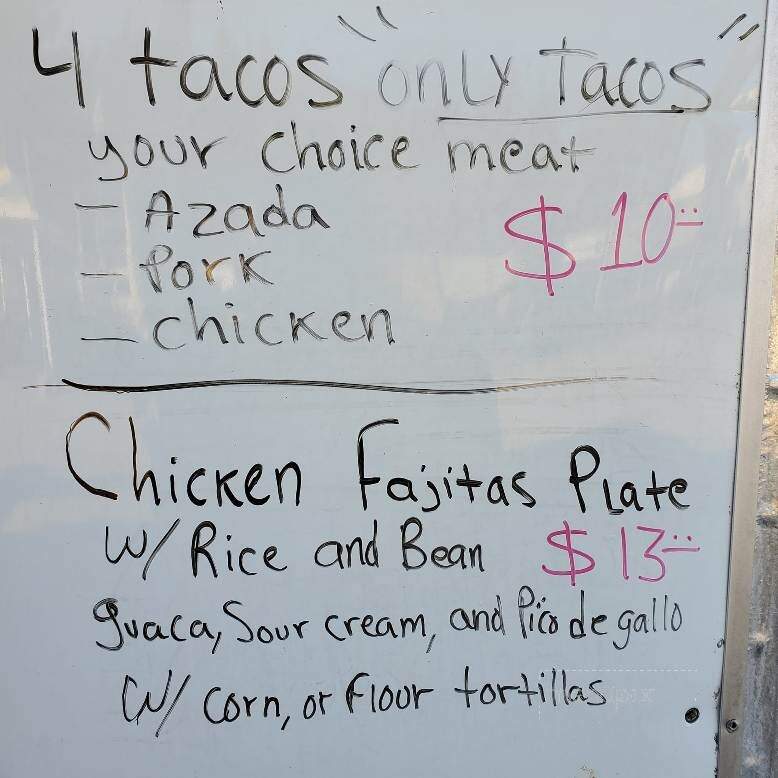 4 tacos "only Tacos"
your choice meat
- Azada
- Pork
- chicken
$10
Chicken Fajitas Plate
W/ Rice and Bean $13
guaca, Sour cream, and Pico de gallo
W/ corn, or Flour tortillas